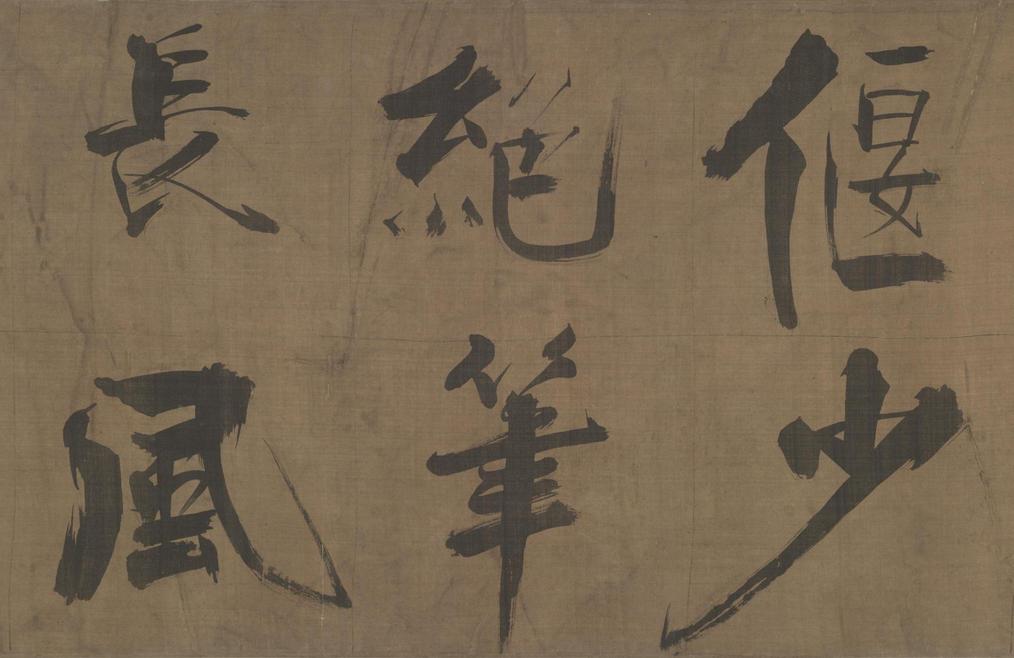 偃少
絶筆
長風